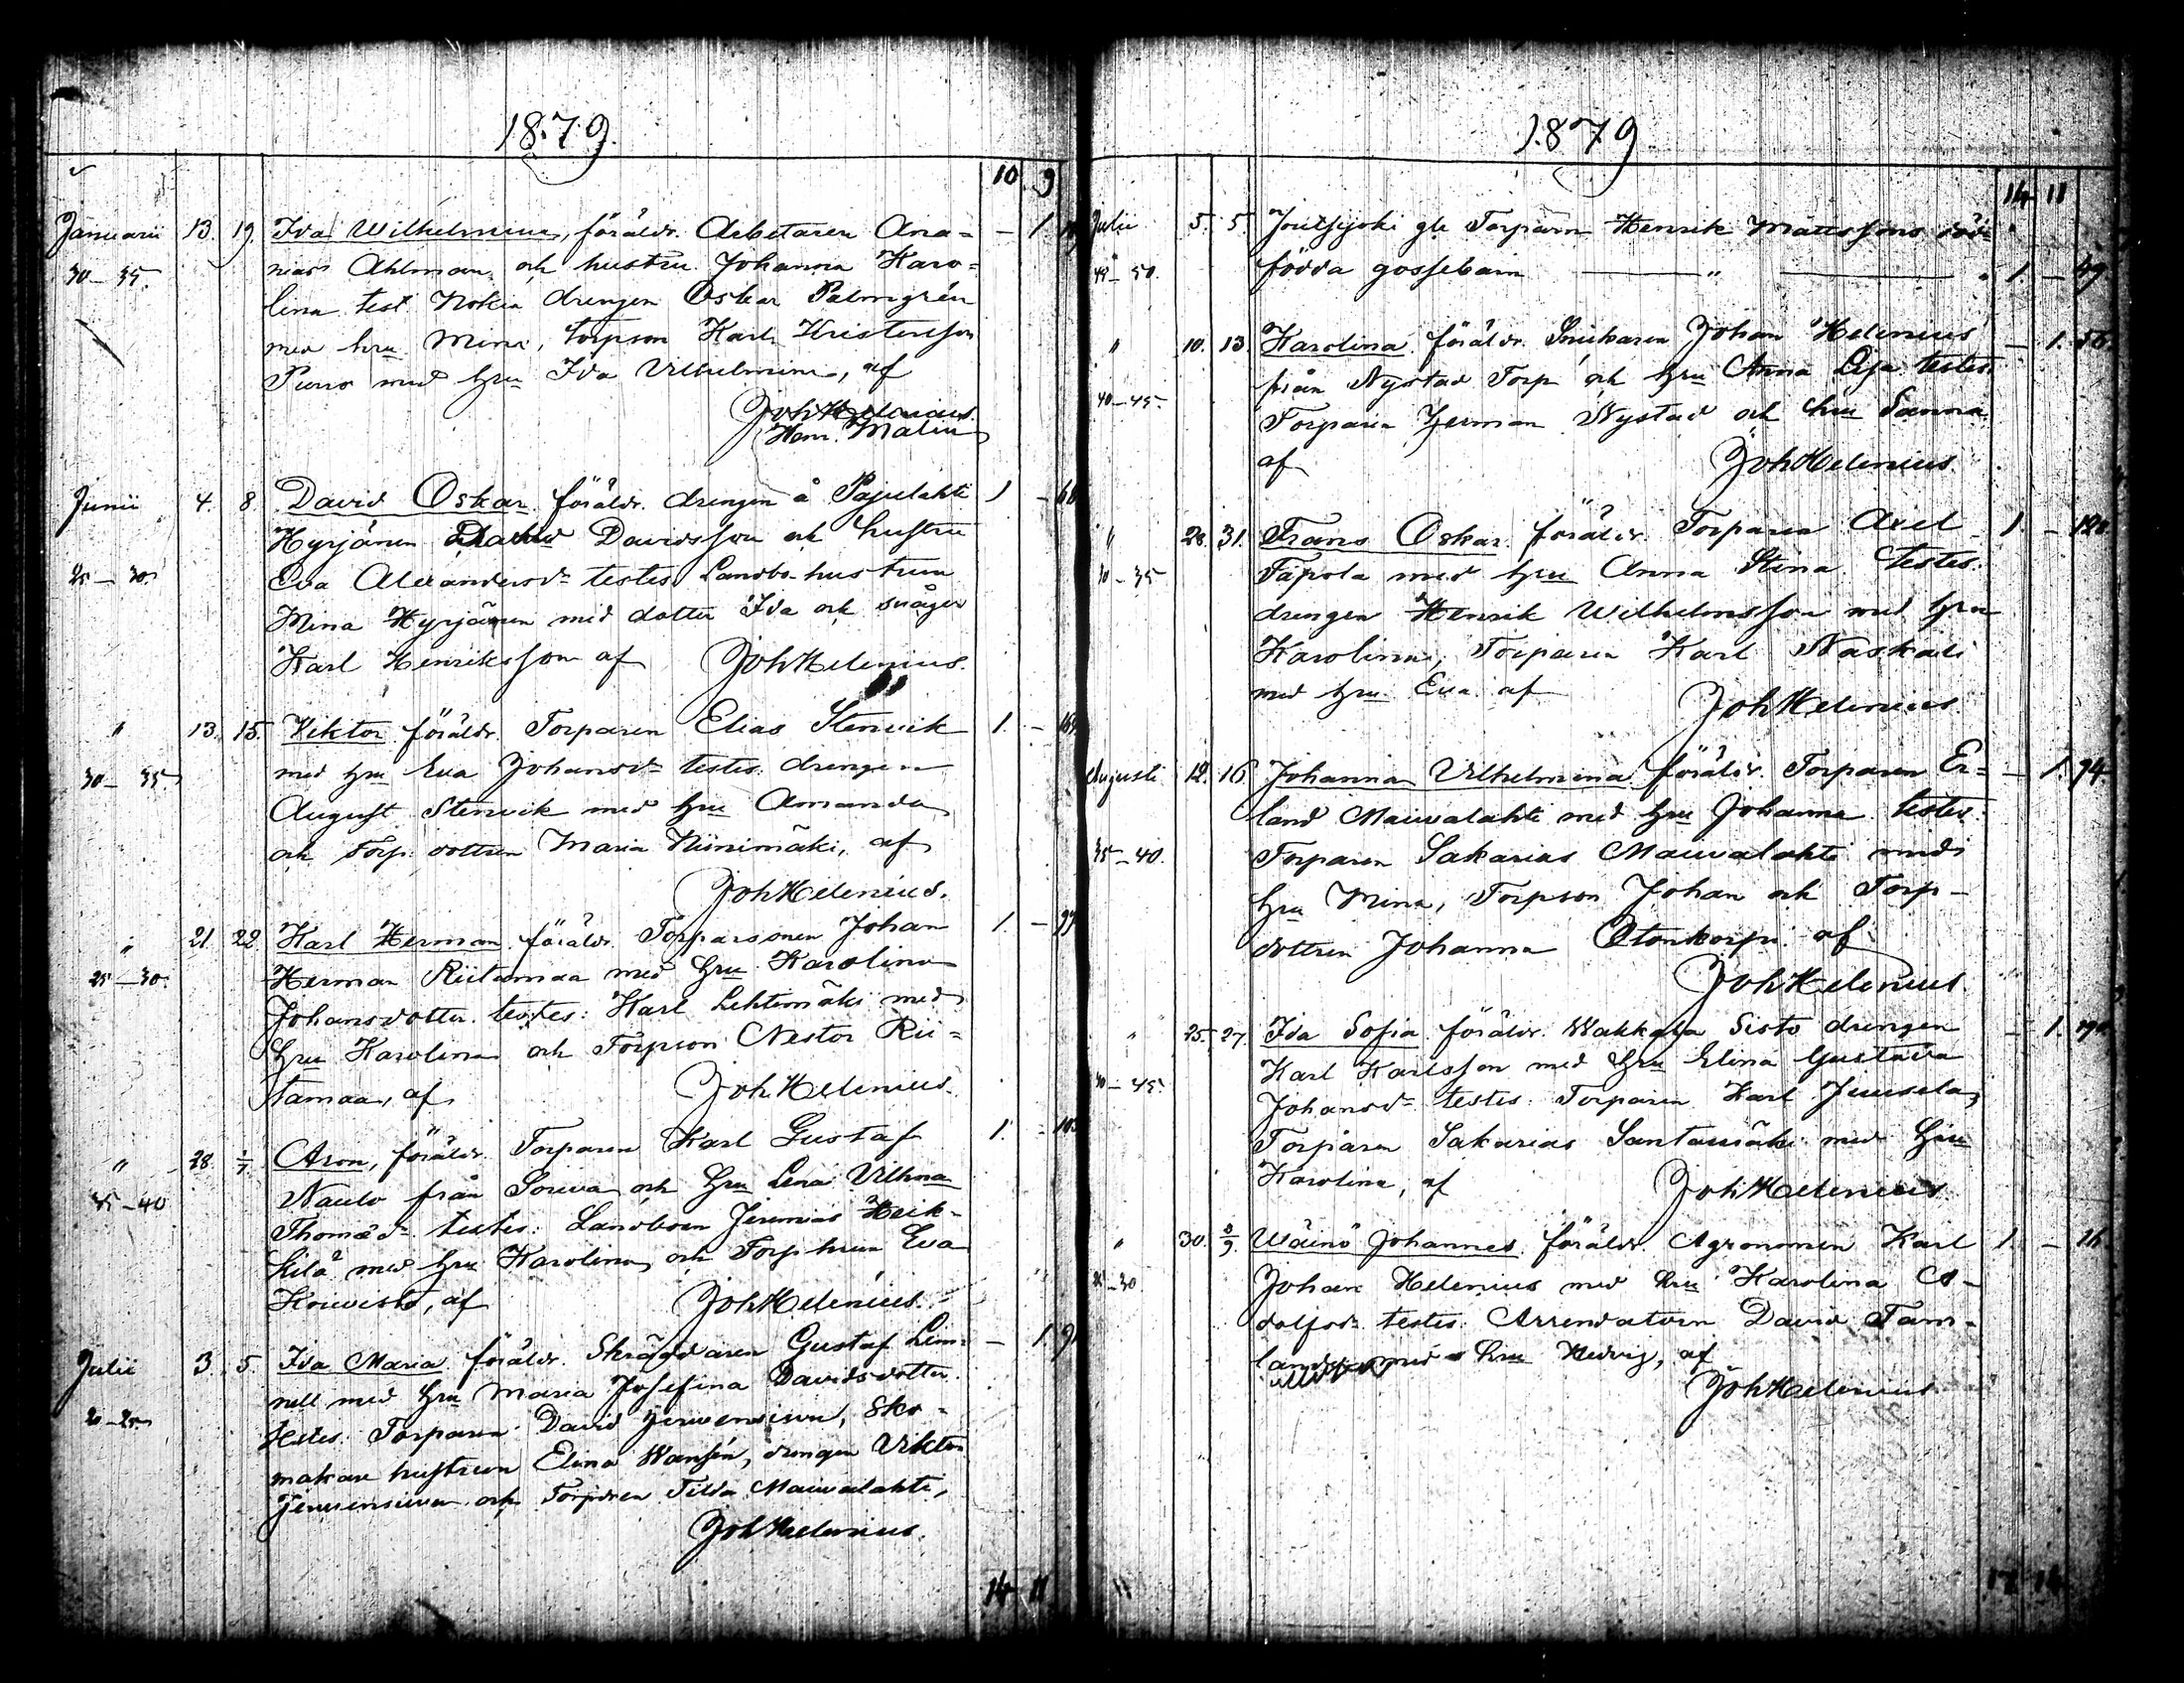 1879.
10 9
Januarii 13. 19. Ida Wilhelmina, föräldr. Arbetaren Ana= — 1
30–35. nias Ahlman och hustru Johanna Karo=
lina test. Nokia drengen Oskar Palmgrén
med hru Mina, torpson Karl Kristersson
Puro med hru Ida Vilhelmina, af
Joh Helenius
Henr. Malin
Junii 4. 8. David Oskar föräldr. drengen å Pajulahti 1 – 68
Hyrjänen David Davidsson och hustru
25–30. Eva Alexandersdr testes Landbo hustrun
Mina Hyrjänen med dotter Ida och svåger
Karl Henriksson af Joh Helenius.
" 13. 15. Viktor föräldr. Torparen Elias Stenvik 1. –
30–35 med hru Eva Johansdr testes: drengen
August Stenvik med hru Amanda
och torp. dottren Maria Niinimäki, af
Joh Helenius.
" 21. 22 Karl Herman föräldr. Torparsonen Johan 1. –
25–30. Herman Riitamaa med hru Karolina
Johansdotter testes: Karl Lehtimäki med
hru Karolina och Torpson Nestor Rii=
tamaa, af Joh Helenius.
" 28. 1/7. Aron, föräldr. Torparen Karl Gustaf 1. –
35–40 Naulo från Souva och hru Lena Vilhna
Thomædr testes: Landboen Jeremias Heik=
kilä med hru Karolina och Torp hrun Eva
Koivisto, af Joh Helenius.
Julii 3. 5. Ida Maria föräldr. Skräddaren Gustaf Lin= — 1. 91
20–25 nell med hru Maria Josefina Davidsdotter.
testes. Torparen David Jervensivu, Sko=
makare hustrun Elina Wansén, drengen Viktor
Jervensivu och Torpdren Tilda Maivalahti,
Joh Helenius.
14 11
1879
14 11
Julii 5. 5 gle Torparn Henrik Mattssons död=
45–50. födda gossebarn — " — 1. – 49.
" 10. 13. Karolina föräldr. Snickaren Johan Helenius — 1. 56.
från Nystad Torp och hru Anna Lisa testes.
40–45. Torparen Herman Nystad och hru Sanna
af Joh Helenius
" 28. 31. Frans Oskar föräldr. Torparen Axel 1 –
30–35 Täpola med hru Anna Stina testes.
drengen Henrik Wilhelmsson med hru
Karolina, Torparen Karl Naskali
med hru Eva af Joh Helenius
Augusti 12. 16 Johanna Vilhelmina föräldr. Torparen Er= — 1. 94
land Maivalahti med hru Johanna testes:
35–40. Torparen Sakarias Maivalahti med
hru Mina, Torpson Johan och Torp-
dottren Johanna Otonkorpi af
Joh Helenius.
" 25. 27 Ida Sofia föräldr. Sisto drengen — 1.
Karl Karlsson med hru Elina Gustava
40–45. Johansdr testes. Torparen Karl Juusela,
Torparen Sakarias Santamäki med hru
Karolina, af Joh Helenius
" 30. 8/9. Wäinö Johannes föräldr. Agronomen Karl 1. – 26
25–30 Johan Helenius med hru Karolina A-
dolfsdr testes. Arrendatorn David Tam-
lander med hru Hedvig, af
Joh Helenius